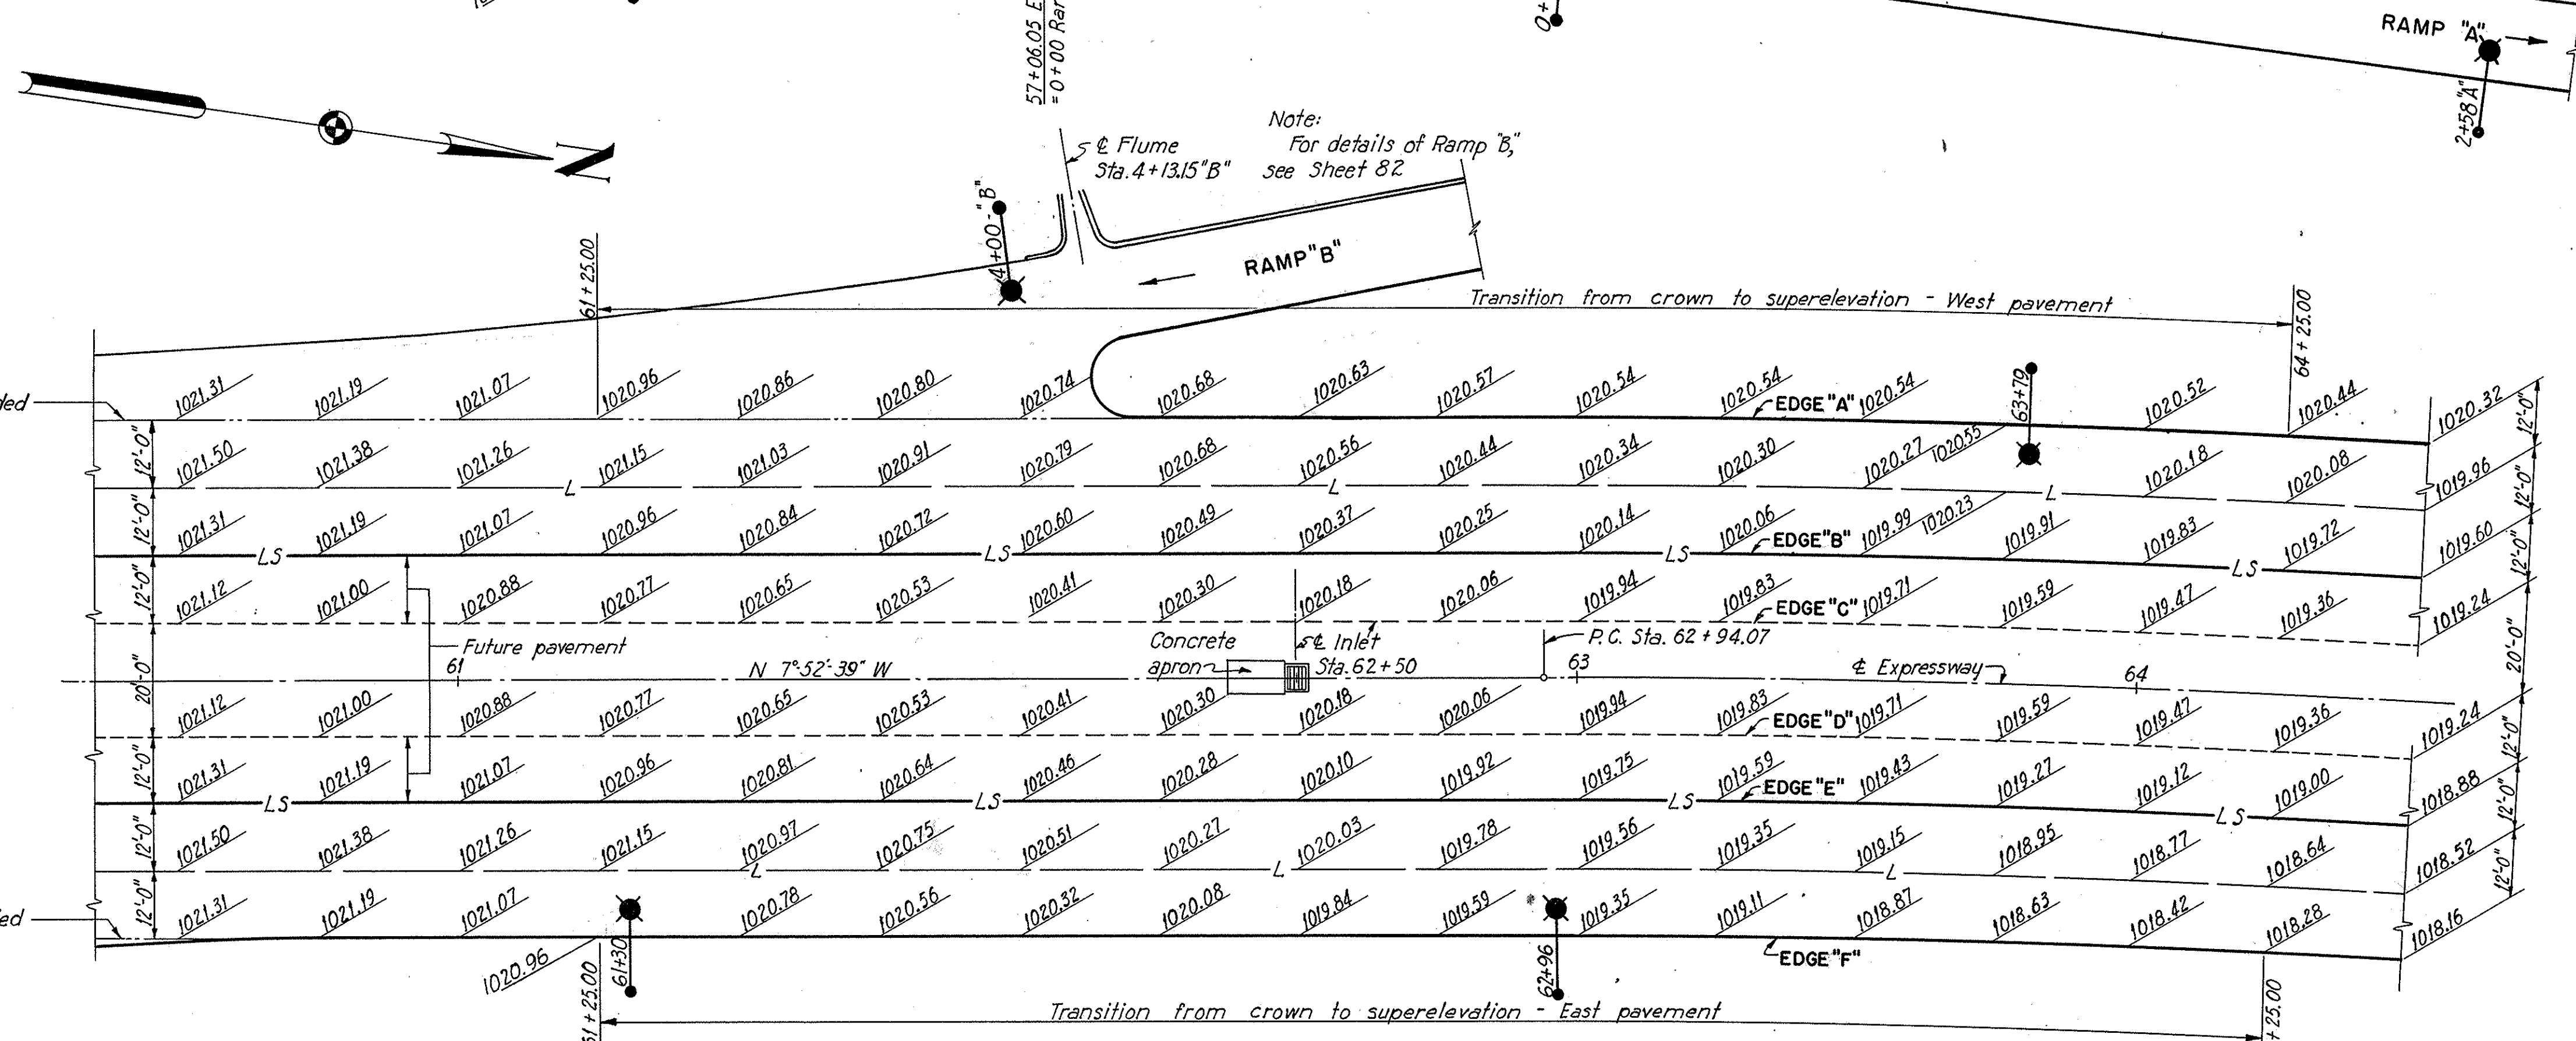 57+06.05 E
=0+00 Ran
0+
RAMP "A"
2+58"A"
N
℄ Flume
Sta. 4+13.15"B"
Note:
For details of Ramp "B,"
see Sheet 82
4+00-"B"
RAMP "B"
61+25.00
Transition from crown to superelevation - West pavement
64+25.00
1021.31 1021.19 1021.07 1020.96 1020.86 1020.80 1020.74 1020.68 1020.63 1020.57 1020.54 1020.54 EDGE "A" 1020.54 63+79 1020.52 1020.44 1020.32
ded
12'-0" 1021.50 1021.38 1021.26 1021.15 1021.03 1020.91 1020.79 1020.68 1020.56 1020.44 1020.34 1020.30 1020.27 1020.55 1020.18 1020.08 1019.96 12'-0"
L L L
12'-0" 1021.31 1021.19 1021.07 1020.96 1020.84 1020.72 1020.60 1020.49 1020.37 1020.25 1020.14 1020.06 EDGE "B" 1019.99 1020.23 1019.91 1019.83 1019.72 1019.60 12'-0"
LS LS LS LS
12'-0" 1021.12 1021.00 1020.88 1020.77 1020.65 1020.53 1020.41 1020.30 1020.18 1020.06 1019.94 1019.83 EDGE "C" 1019.71 1019.59 1019.47 1019.36 1019.24 12'-0"
Future pavement
Concrete
apron
℄ Inlet
Sta. 62+50
P.C. Sta. 62+94.07
20'-0" 61 N 7°-52'-39" W 63 ℄ Expressway 64 20'-0"
1021.12 1021.00 1020.88 1020.77 1020.65 1020.53 1020.41 1020.30 1020.18 1020.06 1019.94 1019.83 EDGE "D" 1019.71 1019.59 1019.47 1019.36 1019.24
12'-0" 1021.31 1021.19 1021.07 1020.96 1020.81 1020.64 1020.46 1020.28 1020.10 1019.92 1019.75 1019.59 EDGE "E" 1019.43 1019.27 1019.12 1019.00 1018.88 12'-0"
LS LS LS LS
12'-0" 1021.50 1021.38 1021.26 1021.15 1020.97 1020.75 1020.51 1020.27 1020.03 1019.78 1019.56 1019.35 1019.15 1018.95 1018.77 1018.64 1018.52 12'-0"
L L L
12'-0" 1021.31 1021.19 1021.07 1020.78 1020.56 1020.32 1020.08 1019.84 1019.59 1019.35 1019.11 1018.87 1018.63 1018.42 1018.28 1018.16 12'-0"
EDGE "F"
1020.96
61+30
62+96
61+25.00
Transition from crown to superelevation - East pavement
+25.00